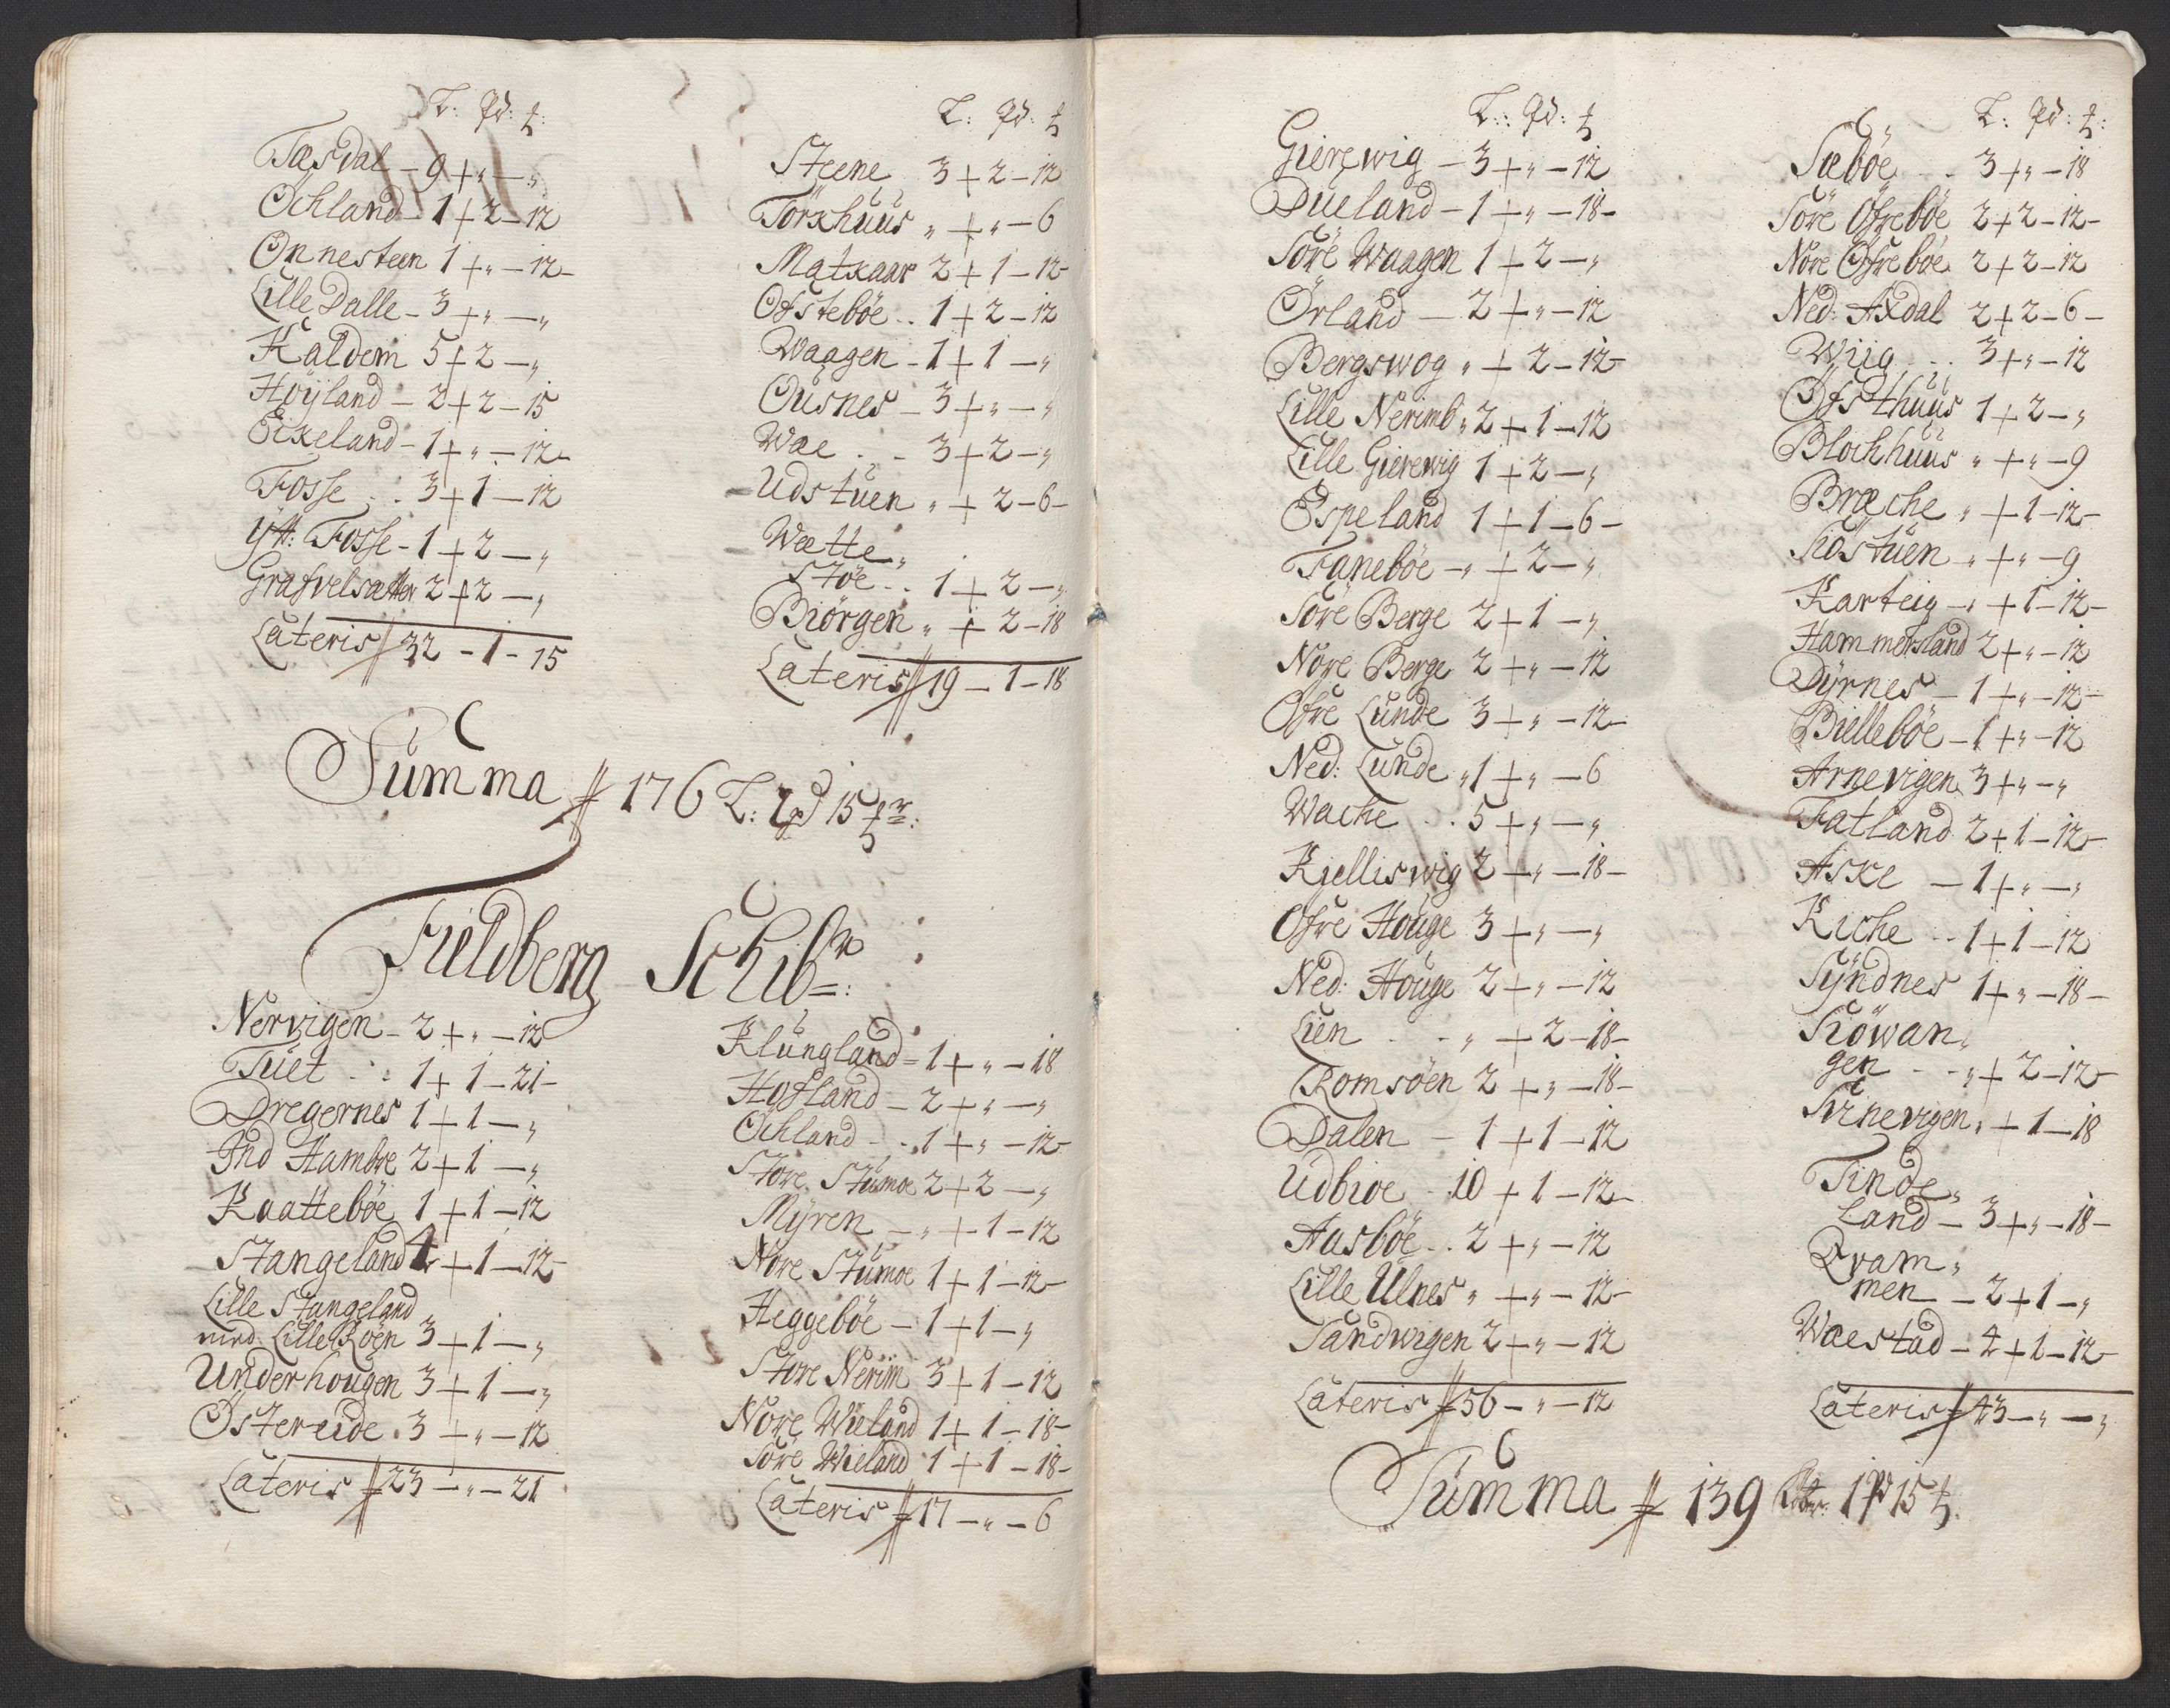 L: Pd: ℔:
Tæsdal – 9 + „ – „
Ochland – 1 + 2 – 12
Onnesteen 1 + „ – 12 –
Lille Dalle – 3 + „ – „
Kaldem 5 + 2 – „
Höyland – 2 + 2 – 15
Eikeland – 1 + „ – 12 –
Fosse . : 3 + 1 – 12
Ytt: Fosse – 1 + 2 – „
Grafvelsætter 2 + 2 – „
Lateris 32 – 1 – 15
L: Pd: ℔
Steene 3 + 2 – 12
Törkhuus „ + „ – 6
Matkaar 2 + 1 – 12 –
Ofsteböe . . 1 + 2 – 12
Waagen – 1 + 1 – „
Ousnes – 3 + „ – „
Wae . – 3 + 2 – „
Udstuen „ + 2 – 6 –
Wætte„
Stöe . . 1 + 2 – „
Biörgen „ + 2 – 18
Lateris 19 – 1 – 18
Summa 176 L: 1 Pd 15 ℔r:
Fieldberg Schibr:
Nervigen – 2 + „ – 12
Tuet . : 1 + 1 – 21 –
Dregernes 1 + 1 – „
Ind Hambre 2 + 1 – „
Kaatteböe 1 + 1 – 12
Stangeland 4 + 1 – 12 –
Lille Stangeland
med Lille Röen 3 + 1 – „
Underhougen 3 + 1 – „
Ostereide . 3 + „ – 12
Lateris 23 – „ – 21
Klungland – 1 + „ – 18
Hofland – 2 + „ – „
Ochland – . 1 + „ – 12 –
Store Stumoe 2 + 2 – „
Myren – „ + 1 – 12
Nore Stumoe 1 + 1 – 12 –
Heggeböe – 1 + 1 – „
Store Nerim 3 + 1 – 12
Nore Wieland 1 + 1 – 18 –
Söre Wieland 1 + 1 – 18 –
Lateris 17 – „ – 6
L: Pd: ℔
Gierewig – 3 + „ – 12
Dueland – 1 + „ – 18 –
Söre Waagen 1 + 2 – „
Örland – 2 + „ – 12
Bergswog „ + 2 – 12 –
Lille Nerimb „ 2 + 1 – 12
Lille Gierewig 1 + 2 – „
Espeland 1 + 1 – 6 –
Taneböe – „ + 2 – „
Söre Berge 2 + 1 – „
Nore Berge 2 + „ – 12
Ofre Lunde 3 + „ – 12 –
Ned: Lunde „ 1 + „ – 6
Wache . . 5 + „ – „
Kjelliswig 2 + „ – 18 –
Ofre Houge 3 + „ – „
Ned: Houge 2 + „ – 12
Lien . – „ + 2 – 18 –
Romsöen 2 + „ – 18 –
Dalen – 1 + 1 – 12
Udbioe – 10 + 1 – 12 –
Aasböe . . 2 + „ – 12
Lille Ulnes „ + „ – 12 –
Sandwigen 2 + „ – 12
Lateris 56 – „ – 12
L: Pd: ℔:
Sæböe . . 3 + „ – 18
Söre Öfreböe 2 + 2 – 12 –
Nore Öfreböe 2 + 2 – 12
Ned: Axdal 2 + 2 – 6 –
Wiig . . 3 + „ – 12
Ofsthuus 1 + 2 – „
Blochhuus „ + „ – 9
Bræche „ + 1 – 12 –
Röstuen „ + „ – 9
Karteig – „ + 1 – 12 –
Hammersland 2 + „ – 12
Dyrnes – 1 + „ – 12 –
Bielleböe – 1 + „ – 12
Arnevigen 3 + „ – „
Fatland 2 + 1 – 12 –
Aske – 1 + „ – „
Kiche . . 1 + 1 – 12
Syndnes 1 + „ – 18 –
Sköwan„
gen . – „ + 2 – 12 –
Svinevigen „ + 1 – 18
Tinde„
Land – 3 + „ – 18 –
Dram„
men – 2 + 1 – „
Waestad – 4 + 1 – 12 –
Lateris 43 – „ – „
Summa 139 1 Pd 15 ℔.